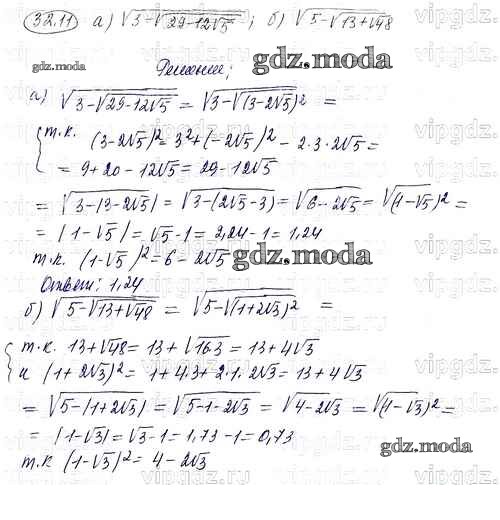 32.11 а) √3-√29-12√5 ; б) √5-√13+√48
gdz.moscow
Решение; gdz.moscow
а) √3-√29-12√5 = √3-√(3-2√5)² =
{ т.к. (3-2√5)² = 3²+(-2√5)² - 2·3·2√5 =
= 9+20-12√5 = 29-12√5
= √3-|3-2√5| = √3-(2√5-3) = √6-2√5 = √(1-√5)² =
= |1-√5| = √5-1 = 2,24-1 = 1,24
т.к. (1-√5)² = 6-2√5 gdz.moscow
Ответ: 1,24
б) √5-√13+√48 = √5-√(1+2√3)² =
{ т.к. 13+√48 = 13+√16·3 = 13+4√3
и (1+2√3)² = 1+4·3+2·1·2√3 = 13+4√3
= √5-|1+2√3| = √5-1-2√3 = √4-2√3 = √(1-√3)² =
= |1-√3| = √3-1 = 1,73-1 = 0,73
gdz.moscow
т.к (1-√3)² = 4-2√3
vipgdz.ru